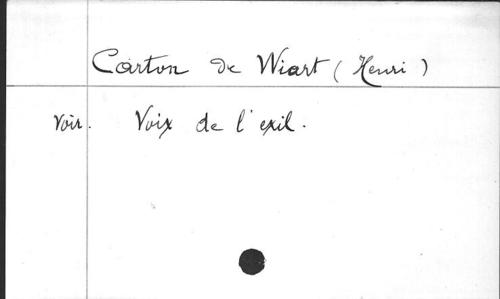 Carton de Wiart (Henri)
Voir. Voix de l'exil.